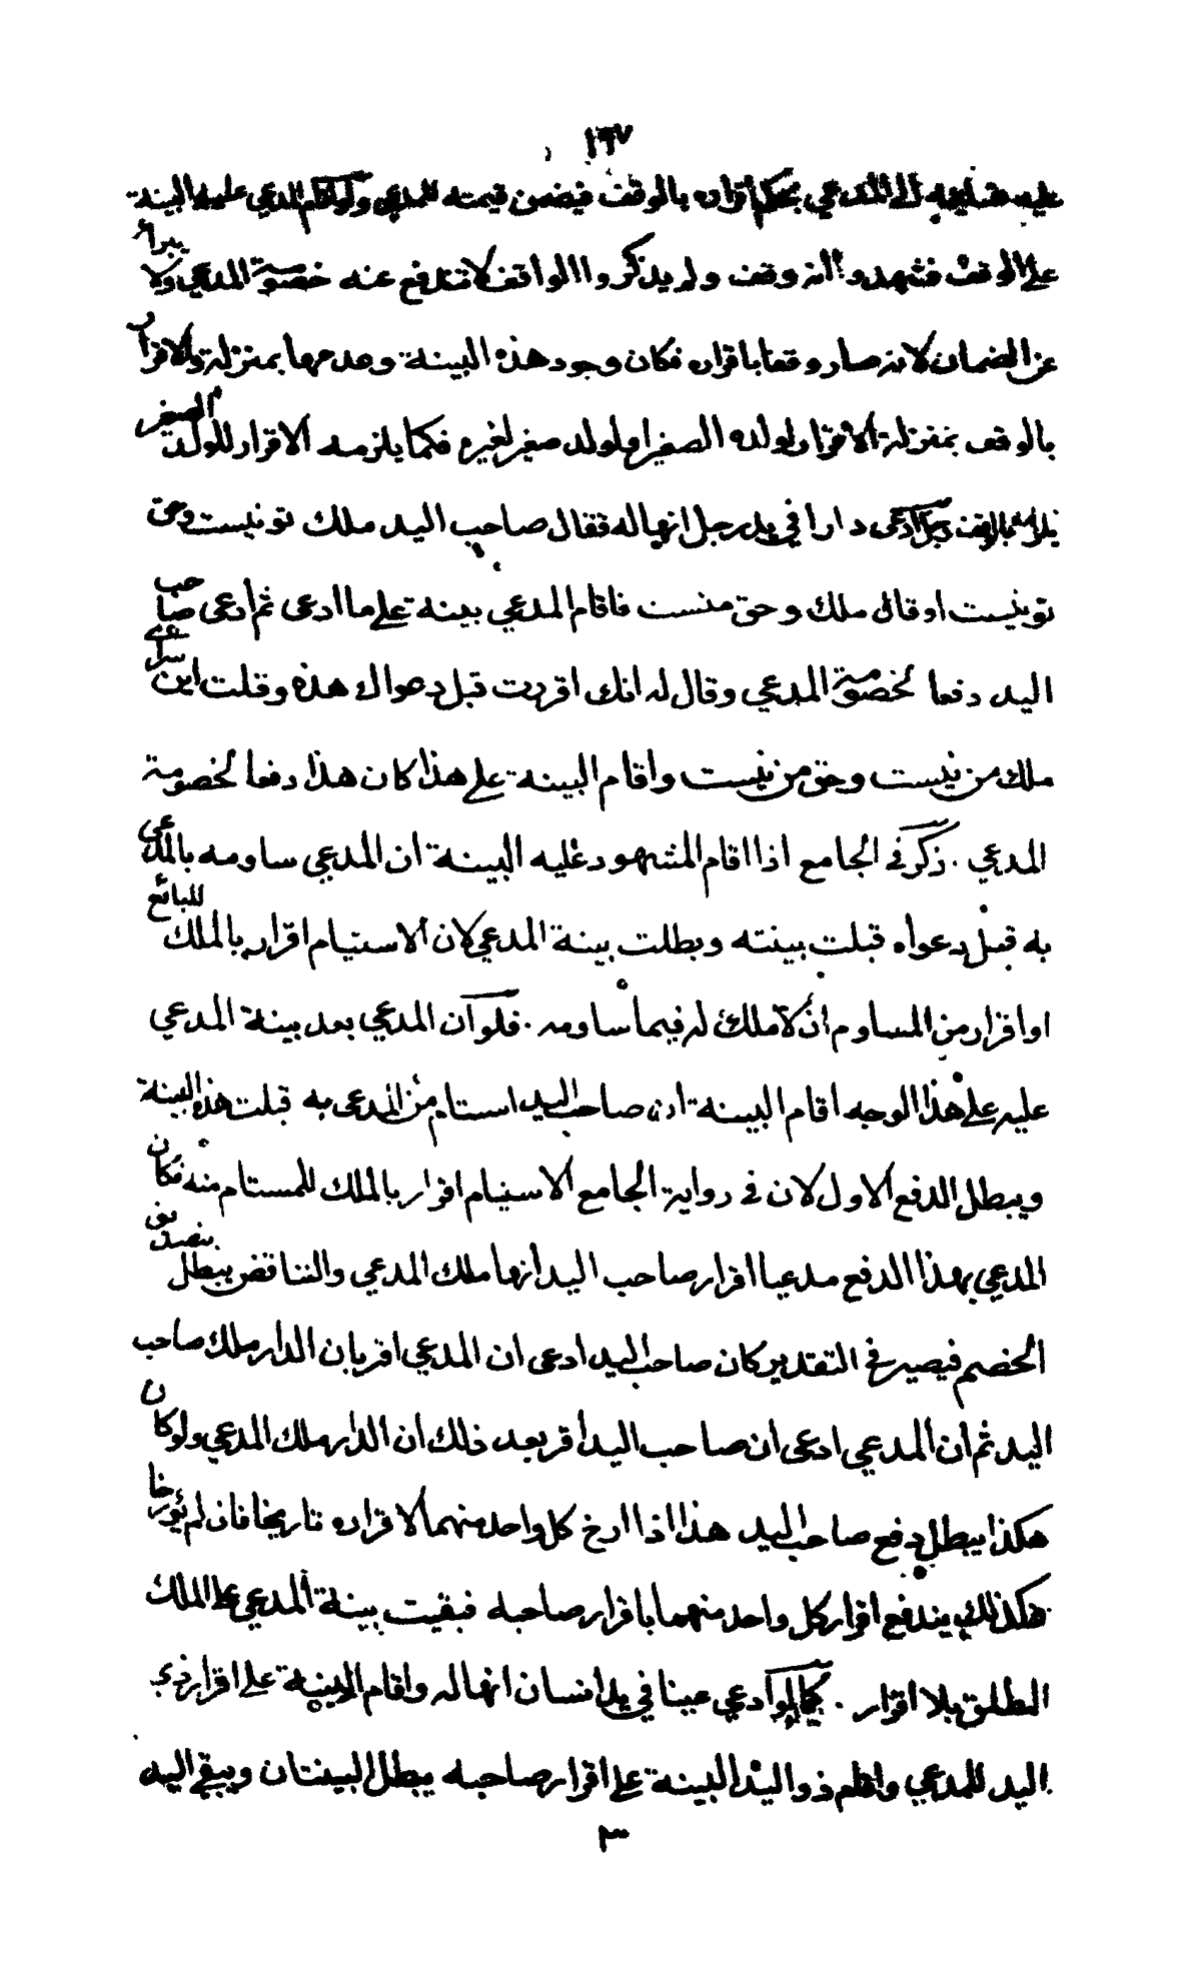 ١٦٧
عليه تسليمه الى المدعي بحكم اقراره بالوقف فيضمن قيمته للمدعي ولو اقام المدعي عليه البينة
على الوقف فشهدوا انه وقف ولم يذكروا الواقف لا تندفع عنه خصومة المدعي ولا يبرأ
عن الضمان لانه صار وقفا باقراره فكان وجود هذه البينة وعدمها بمنزلة والاقرار
بالوقف بمنزلة الاقرار لولده الصغير او لولد صغير لغيره فكما يلزمه الاقرار للولد الصغير
يلزمه بالوقف رجل ادعى دارا في يد رجل انها له فقال صاحب اليد ملك تو نيست وحق
تو نيست او قال ملك وحق منست فاقام المدعي بينة على ما ادعى ثم ادعى صاحب
اليد دفعا لخصومة المدعي وقال له انك اقررت قبل دعواك هذه وقلت اين سراى
ملك من نيست وحق من نيست واقام البينة على هذا كان هذا دفعا لخصومة
المدعي . ذكر في الجامع اذا اقام المشهود عليه البينة ان المدعي ساومه بالمدعى
به قبل دعواه قبلت بينته وبطلت بينة المدعي لان الاستيام اقرار بالملك للبائع
او اقرار من المساوم ان لا ملك له فيما ساومه . فلو ان المدعي بعد بينة المدعي
عليه على هذا الوجه اقام البينة ان صاحب اليد استام من المدعى به قبلت هذه البينة
ويبطل الدفع الاول لان في رواية الجامع الاستيام اقرار بالملك للمستام منه فكان
المدعي بهذا الدفع مدعيا اقرار صاحب اليد انها ملك المدعي والتناقض يبطل بتصديق
الخصم فيصير في التقدير كان صاحب اليد ادعى ان المدعي اقر بان الدار ملك صاحب
اليد ثم ان المدعي ادعى ان صاحب اليد اقر بعد ذلك ان الدار ملك المدعي ولو كان
هكذا يبطل دفع صاحب اليد هذا اذا ارخ كل واحد منهما لاقراره تاريخا فان لم يؤرخا
فكذلك يندفع اقرار كل واحد منهما باقرار صاحبه فبقيت بينة المدعي على الملك
المطلق بلا اقرار . كما لو ادعي عينا في يد انسان انها له واقام البينة على اقرار ذي
اليد للمدعي واقام ذو اليد البينة على اقرار صاحبه يبطل البينتان ويبقى اليد